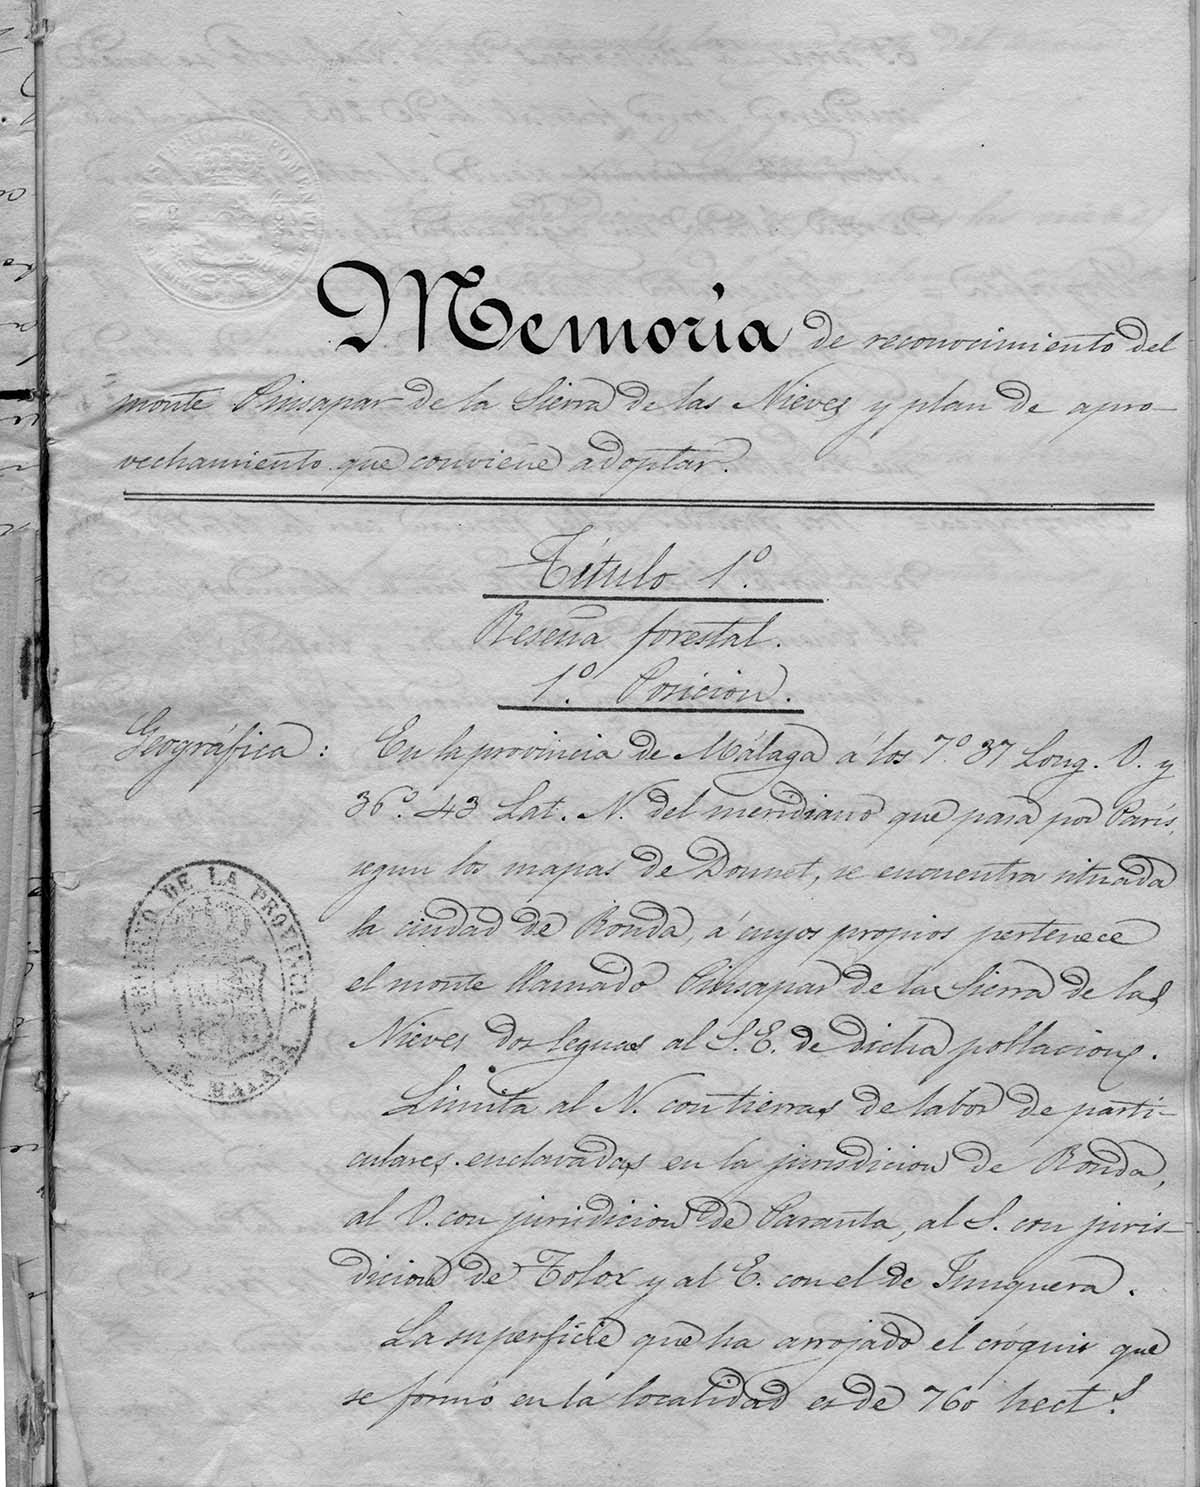 Memoria de reconocimiento del
monte Pinsapar de la Sierra de las Nieves y plan de apro-
vechamiento que conviene adoptar.
Título 1º.
Reseña forestal.
1º. Posicion.
Geográfica: En la provincia de Málaga á los 7º. 37 Long. O. y
36º. 43 Lat. N. del meridiano que pasa por París,
segun los mapas de Dounet, se encuentra situada
la ciudad de Ronda, á cuyos propios pertenece
el monte llamado Pinsapar de la Sierra de las
Nieves dos leguas al S. E. de dicha poblacion.
Limita al N. con tierras de labor de parti-
culares enclavadas en la jurisdicion de Ronda,
al O. con jurisdicion de Parauta, al S. con juris-
dicion de Tolox y al E. con el de Junquera.
La superficie que ha arrojado el cróquis que
se formó en la localidad es de 760 hect.s
GOBIERNO DE LA PROVINCIA
DE MALAGA